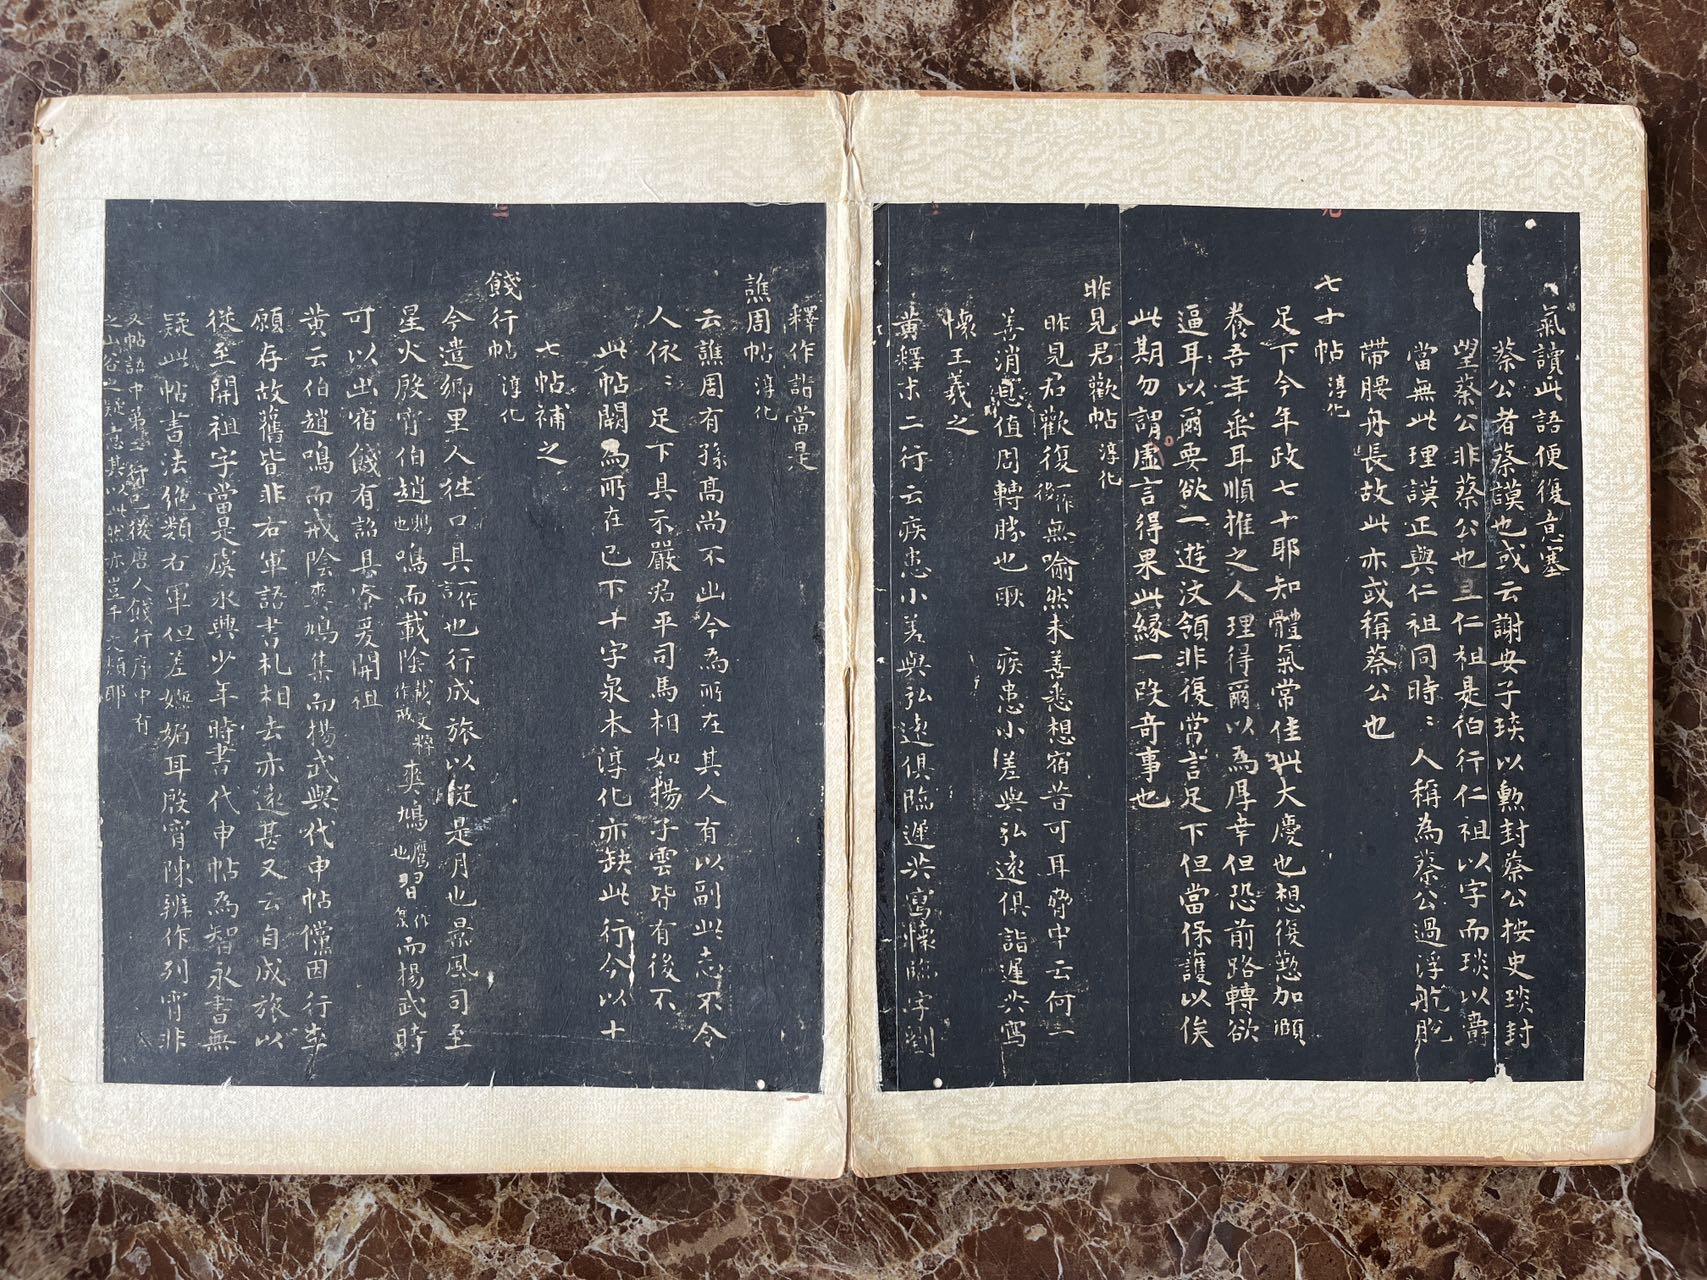 氣讀此語便復意塞
蔡公者蔡謨也或云謝安子琰以勲封蔡公按史琰封
望蔡公非蔡公也且仁祖是伯行仁祖以字而琰以爵
當無此理謨正與仁祖同時〻人稱為蔡公過浮航脫
帶腰舟長故此亦或稱蔡公也
七十帖 淳化
足下今年政七十耶知體氣常佳此大慶也想復懃加頤
養吾年垂耳順推之人理得爾以為厚幸但恐前路轉欲
逼耳以爾要欲一遊汶領非復常言足下但當保護以俟
此期勿謂虛言得果此緣一段奇事也
昨見君歡帖 淳化
昨見君歡復一作後無喻然未善悉想宿昔可耳脅中云何一
善消息值周轉勝也耿 疾患小差與弘遠俱詣遲共寫
懷王羲之
黃釋末二行云疾患小差與弘遠俱臨遲共寫懷臨字劉
釋作詣當是
譙周帖 淳化
云譙周有孫高尚不出今為所在其人有以副此志不令
人依〻足下具示嚴君平司馬相如揚子雲皆有後不
此帖闕為所在已下十字泉本淳化亦缺此行今以十
七帖補之
餞行帖 淳化
今遣鄉里人往口具一作言也行成旅以從是月也景風司至
星火殷宵伯趙鵙也鳴而載陰載文粹作戒爽鳩鷹也習作集而揚武時
可以出宿餞有詔具寮爰開祖
黃云伯趙鳴而戒陰爽鳩集而揚武與代申帖儻因行李
願存故舊皆非右軍語書札相去亦遠甚又云自成旅以
從至開祖字當是虞永興少年時書代申帖為智永書無
疑此帖書法絶類右軍但差嫵媚耳殷宵陳辨作列宵非
又帖語中弟四行已後唐人餞行序中有
之山谷之疑意其以此然亦豈千文類耶